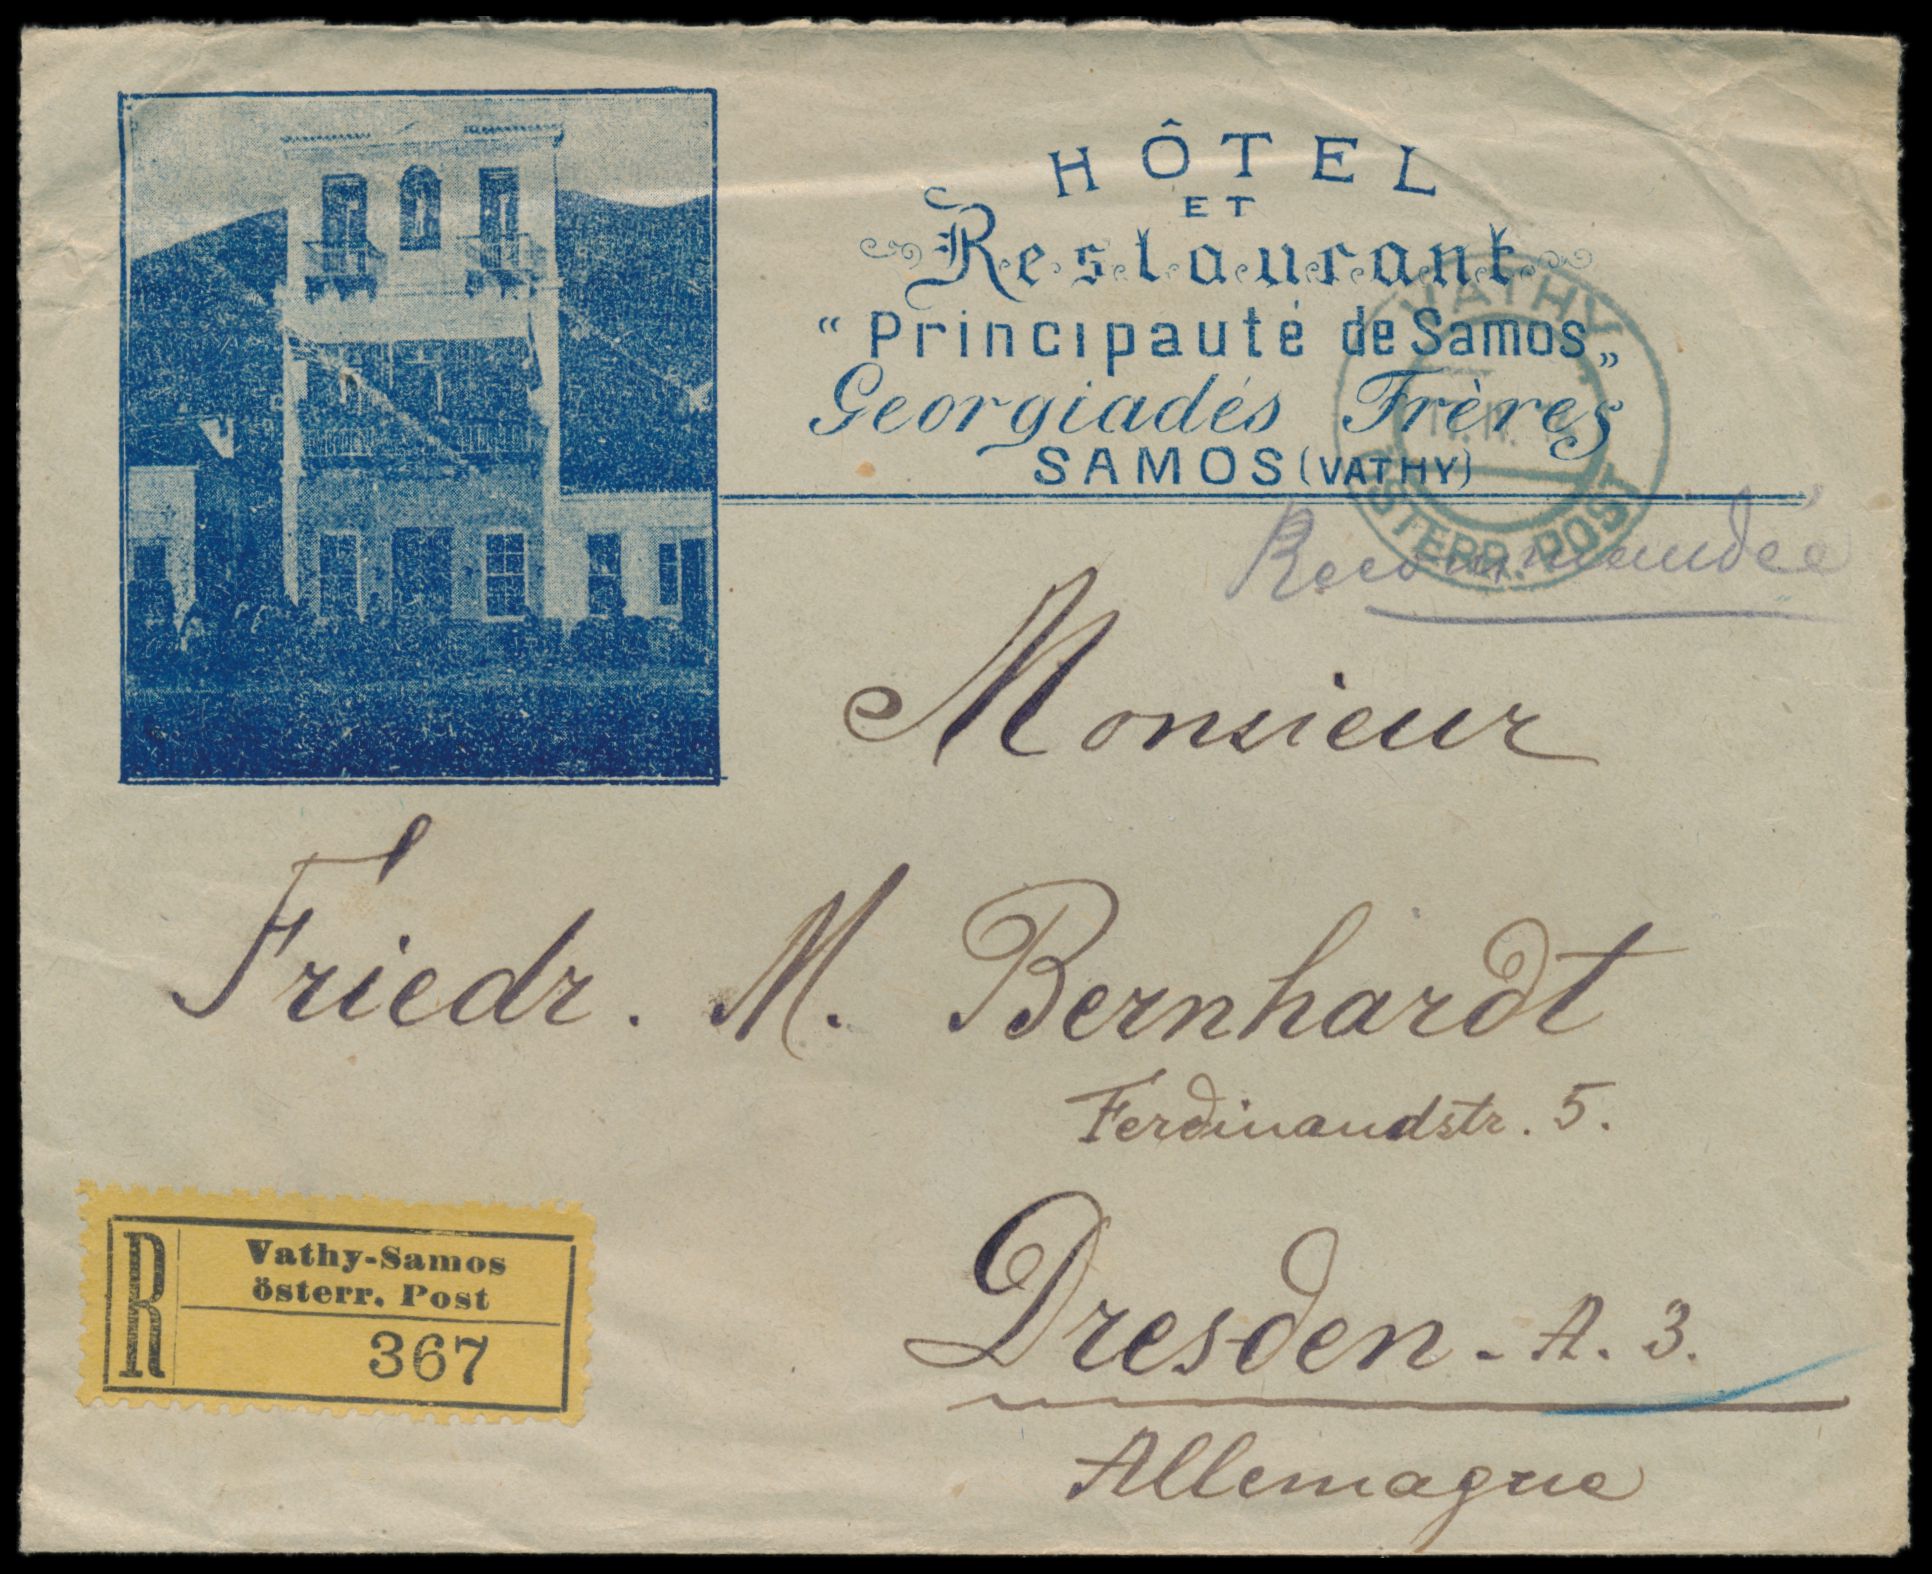 HÔTEL
ET
Restaurant
“Principauté de Samos„
Georgiadés Frères
SAMOS (VATHY)
VATHY
ÖSTERR. POST
Recommandée
Monsieur
Friedr. M. Bernhardt
Ferdinandstr. 5.
Dresden-A. 3.
Allemagne
R
Vathy-Samos
österr. Post
367